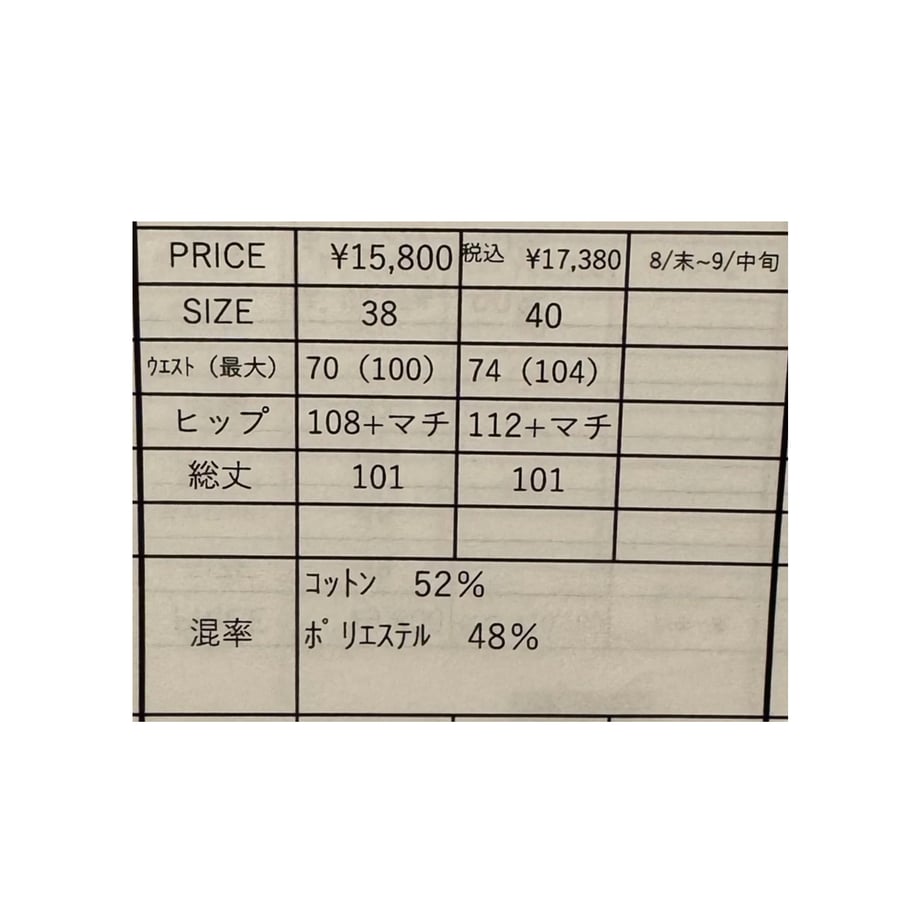 PRICE ¥15,800 税込 ¥17,380 8/末~9/中旬
SIZE 38 40
ｳｴｽﾄ（最大） 70（100） 74（104）
ヒップ 108+マチ 112+マチ
総丈 101 101
混率 ｺｯﾄﾝ 52%
ﾎﾟﾘｴｽﾃﾙ 48%